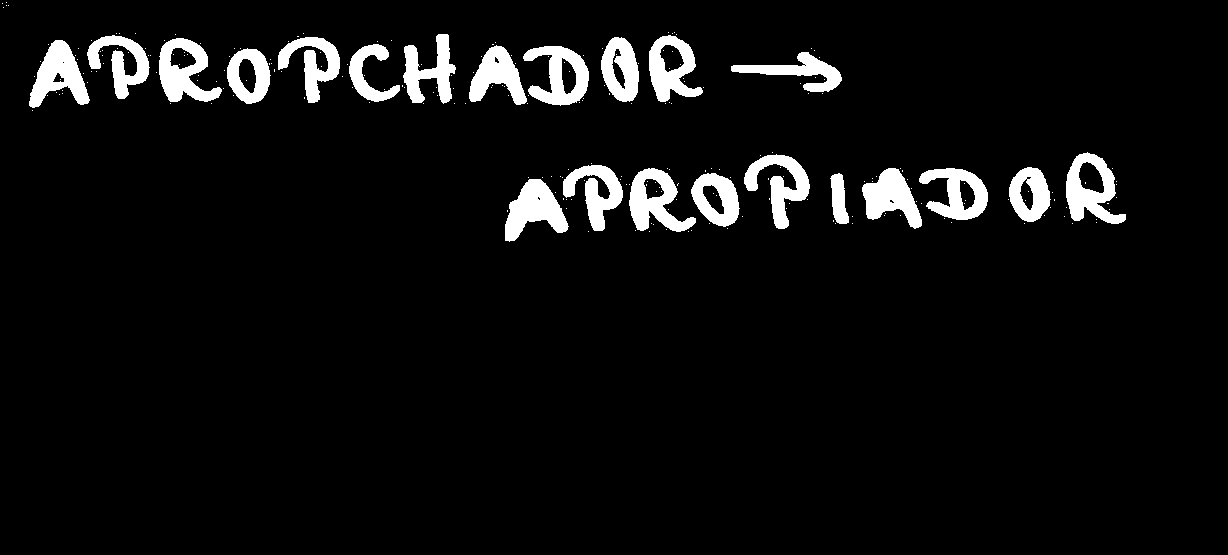 APROPCHADOR →
APROPIADOR